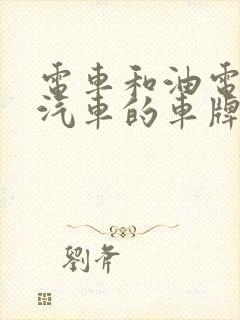 電車和油電
汽車的車牌
劉斧